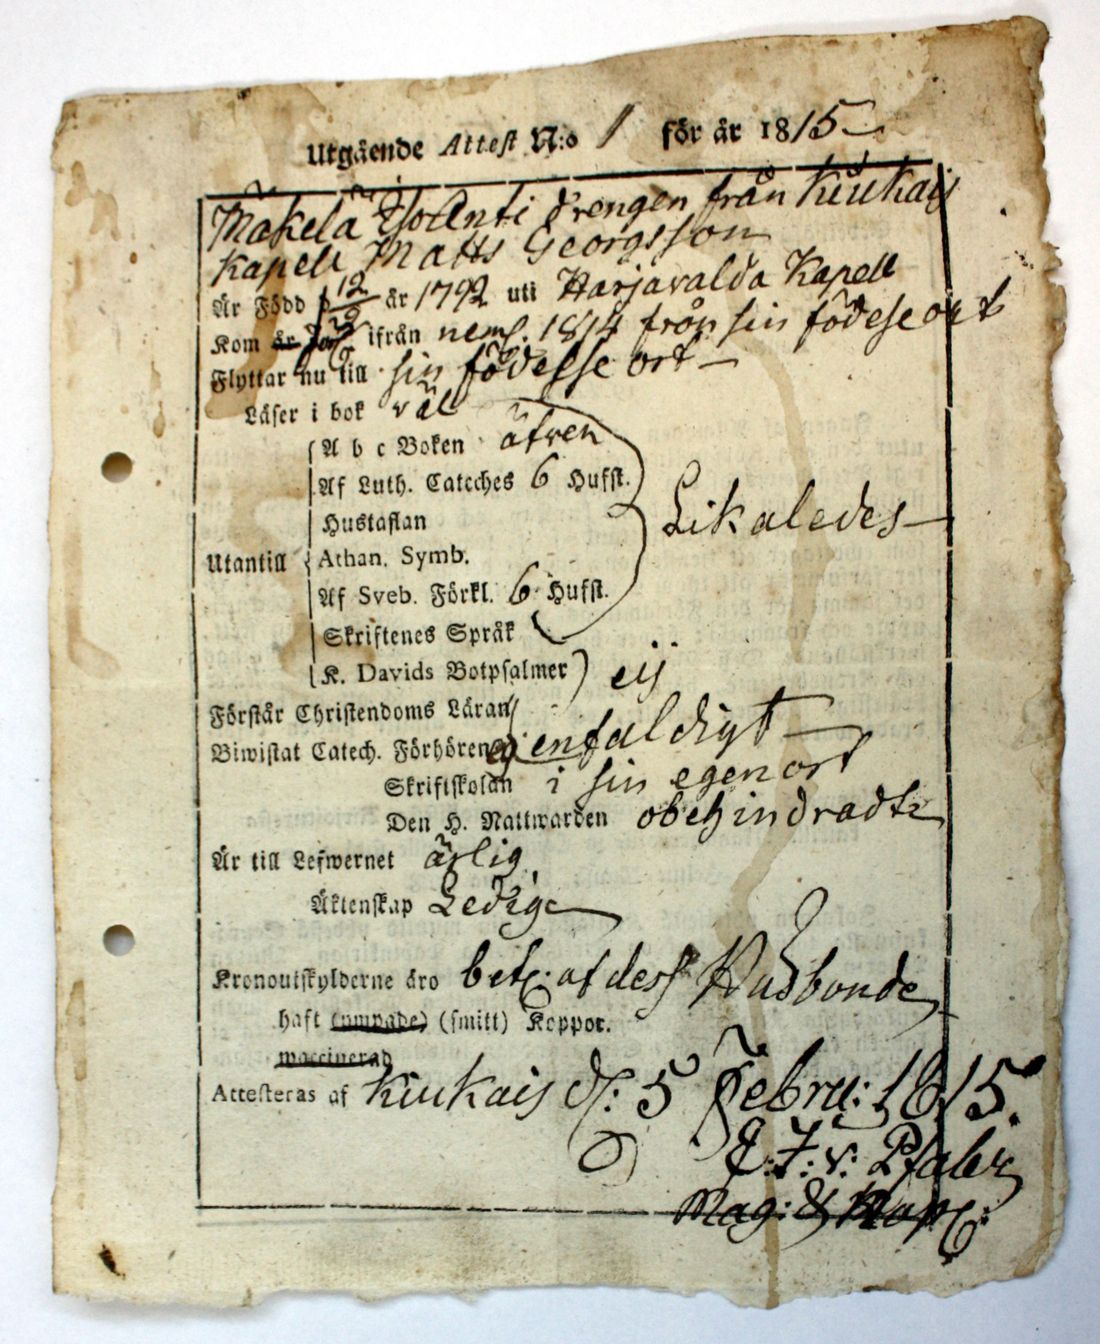 Utgående Attest N:o 1 för år 1815
Mäkelä Drengen från Kiukais
Kapell Matts Georgsson
Är Född d 12/9 år 1792 uti Harjavalda Kapell
Kom ifrån neml. 1814 från sin födelse ort
Flyttar nu till sin födelse ort
Läser i bok väl
A b c Boken äfven
Af Luth. Cateches 6 Hufst.
Hustaflan Likaledes
Utantill Athan. Symb.
Af Sveb. Förkl. 6 Hufst.
Skriftenes Språk
K. Davids Botpsalmer eij
Förstår Christendoms Läran
Biwistat Catech. Förhören enfaldigt
Skriftskolan i sin egen ort
Den H. Nattwarden obehindradt
Är till Lefwernet ärlig
Äktenskap Ledig
Kronoutskylderne äro bet. af dess Husbonde
haft (smitt) Koppor.
waccinerad
Attesteras af Kiukais d. 5 Febru: 1815.
Mag: &